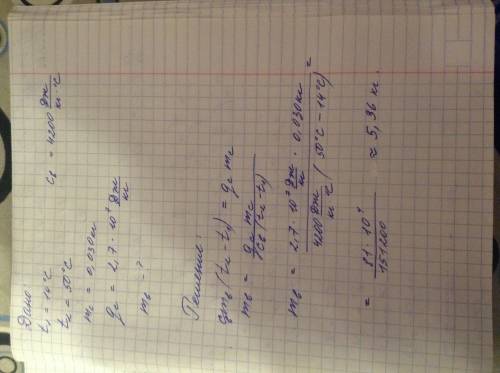 Дано:
t₁ = 14°C
t₂ = 50°C
m_c = 0,030 кг
q_c = 2,7 · 10⁷ Дж/кг
c_в = 4200 Дж/кг·°C
m_в - ?
Решение:
c_в m_в (t₂ - t₁) = q_c m_c
m_в = q_c m_c / c_в (t₂ - t₁)
m_в = 2,7 · 10⁷ Дж/кг · 0,030 кг / 4200 Дж/кг °C (50°C - 14°C) =
= 81 · 10⁴ / 151200 ≈ 5,36 кг.